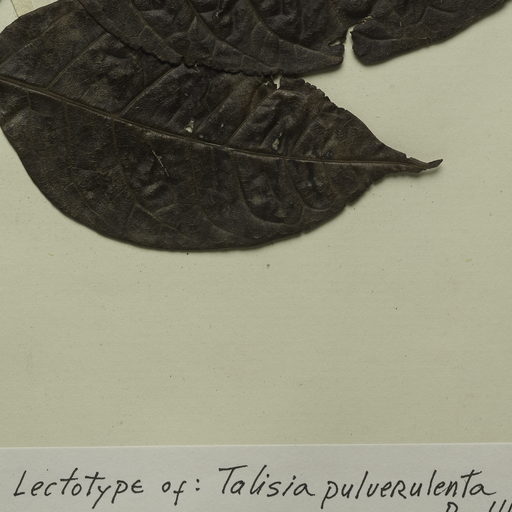 Lectotype of: Talisia pulverulenta